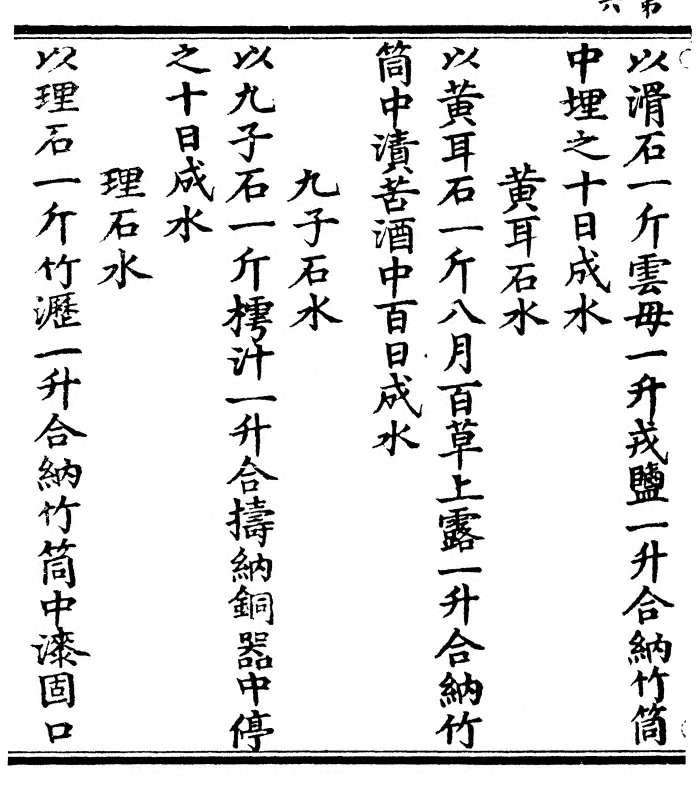 以滑石一斤雲母一升戎鹽一升合納竹筒
中埋之十日成水
黃耳石水
以黃耳石一斤八月百草上露一升合納竹
筒中漬苦酒中百日成水
九子石水
以九子石一斤樗汁一升合擣納銅器中停
之十日成水
理石水
以理石一斤竹瀝一升合納竹筒中漆固口